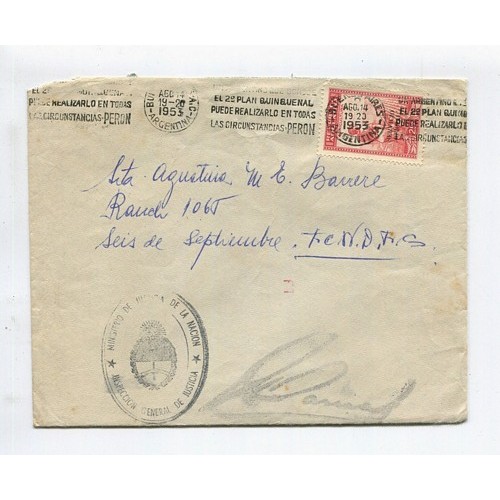 EL 2º PLAN QUINQUENAL
PUEDE REALIZARLO EN TODAS
LAS CIRCUNSTANCIAS-PERON
AGO. 14
19-20
1953
ARGENTINA
EL 2º PLAN QUINQUENAL
PUEDE REALIZARLO EN TODAS
LAS CIRCUNSTANCIAS-PERON
BUENOS AIRES
AGO. 14
19 20
1953
ARGENTINA
ARGENTINO
EL 2º PLAN QUINQUENAL
PUEDE REALIZARLO
LAS CIRCUNSTANCIAS
Sta. Agustina M E Barrere
Rauch 1065
Seis de Septiembre. F.C.N.D.F.S
MINISTERIO DE JUSTICIA DE LA NACION
INSPECCION GENERAL DE JUSTICIA